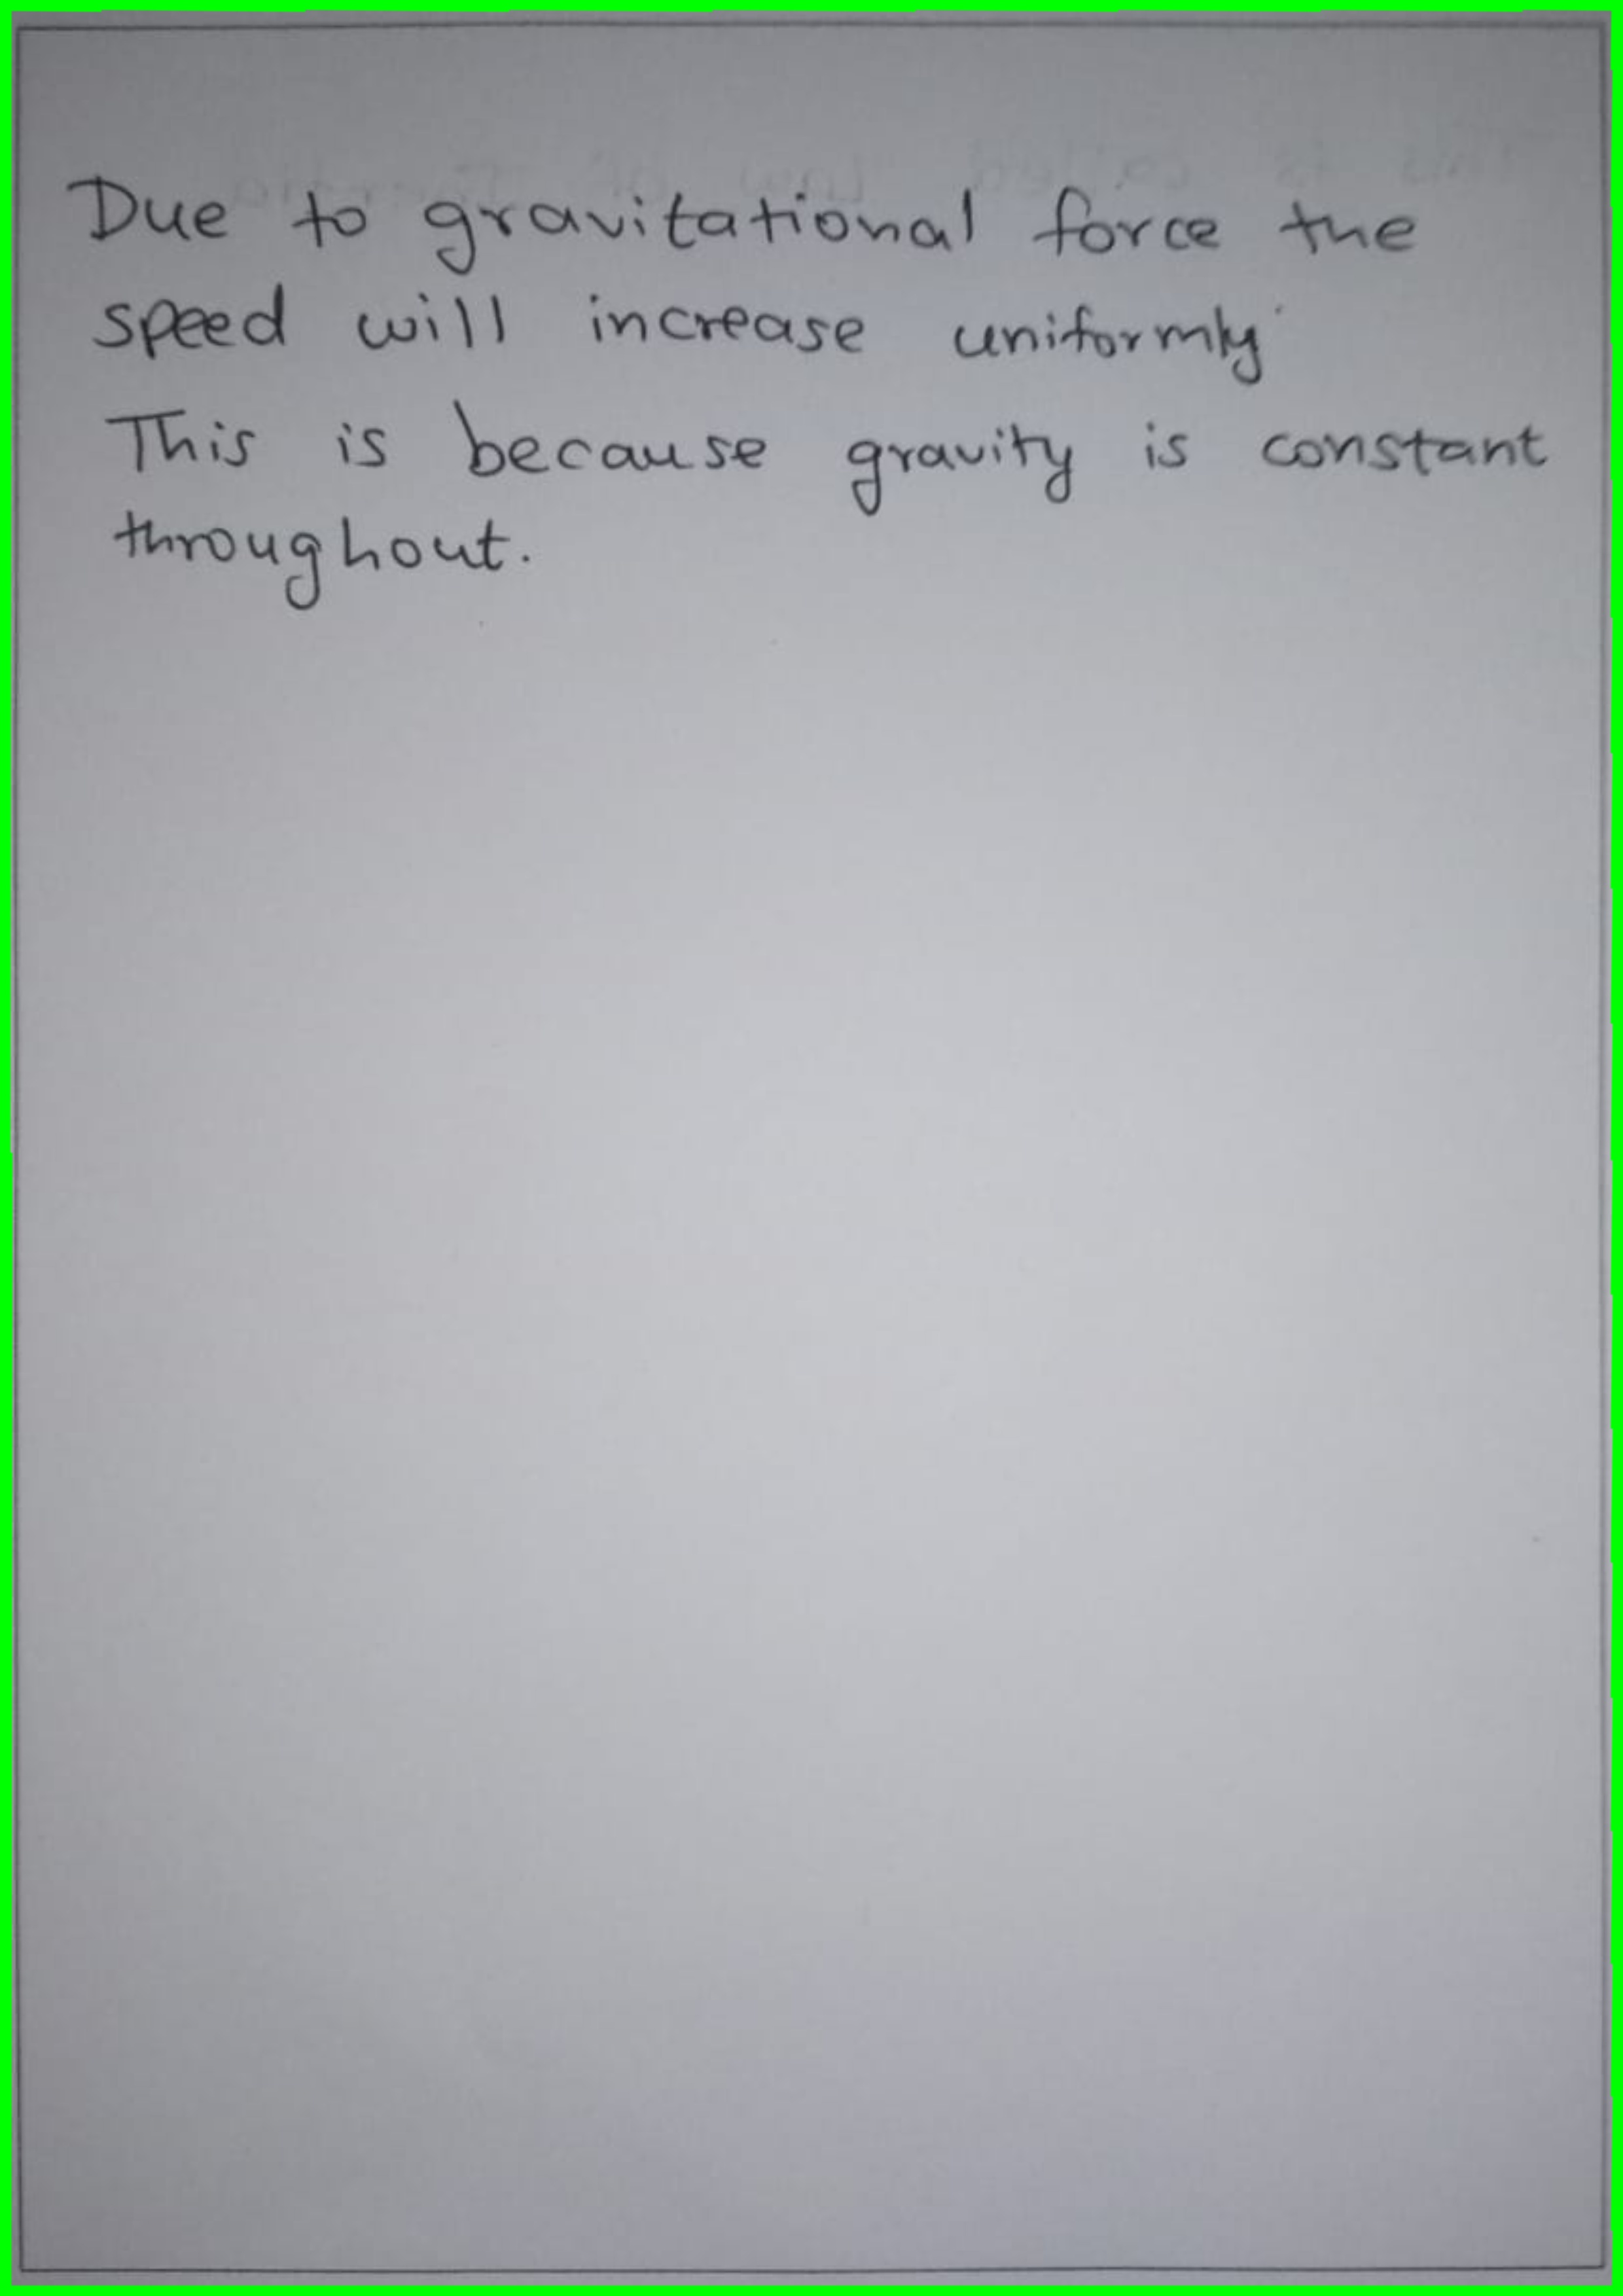 Due to gravitational force the
speed will increase uniformly
This is because gravity is constant
throughout.